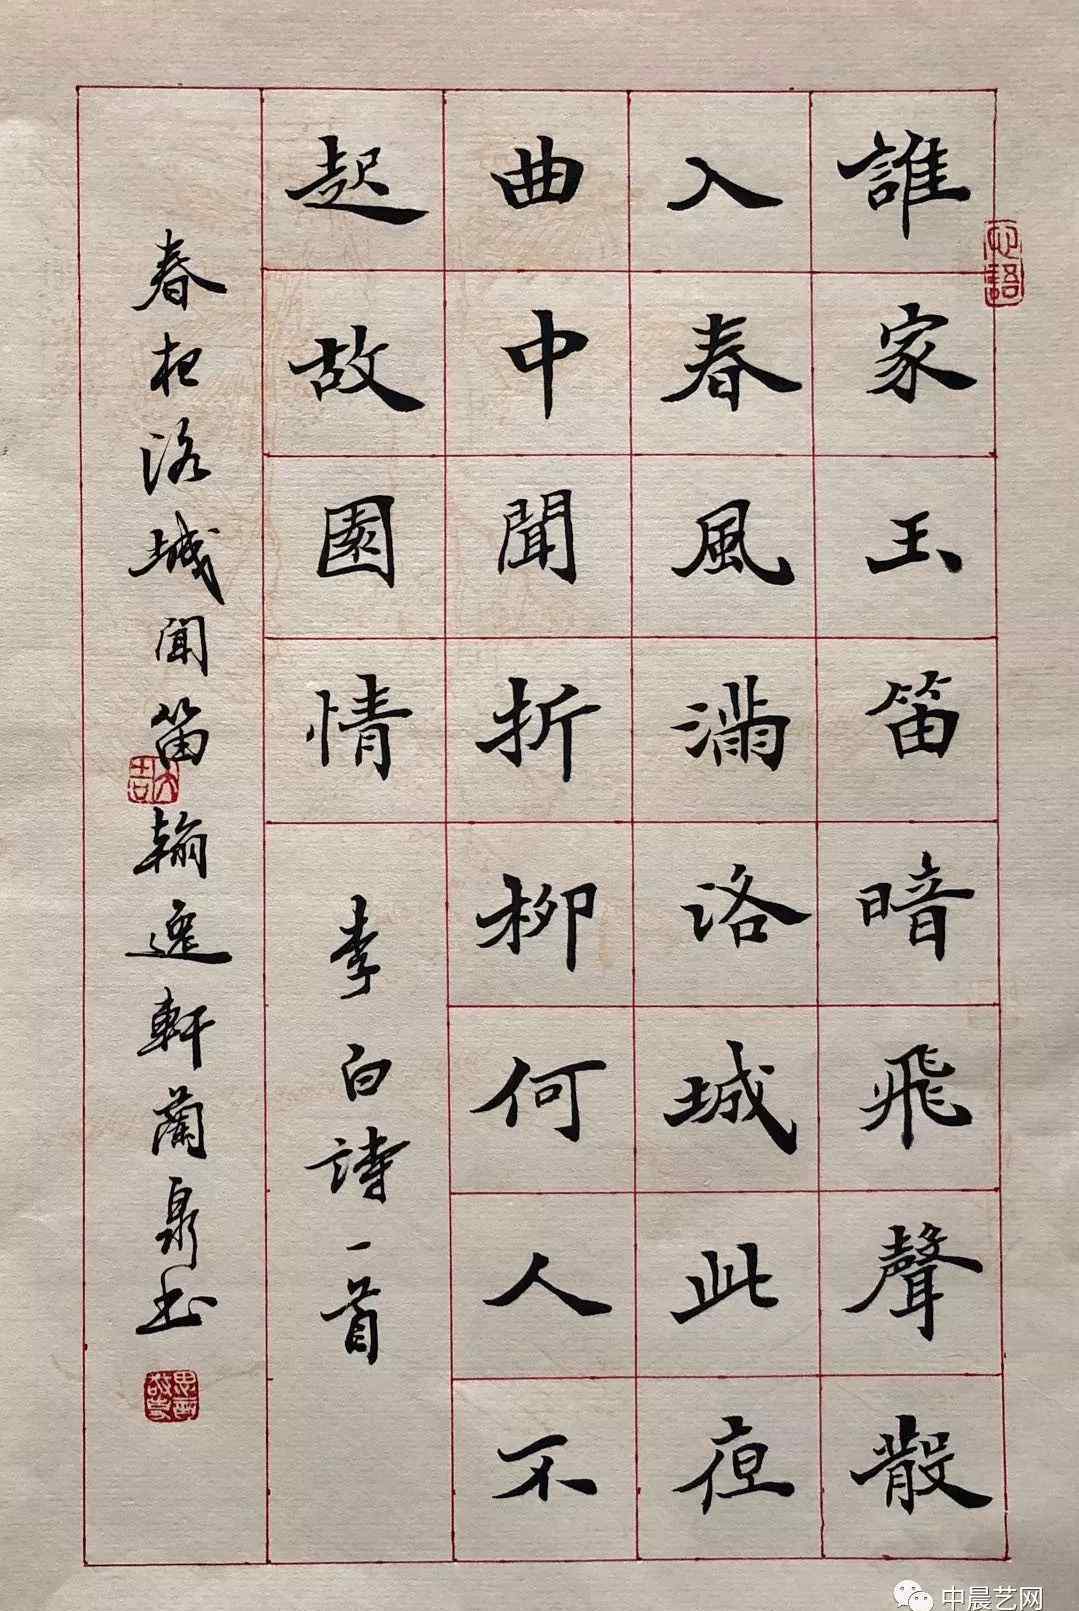 誰家玉笛暗飛聲散
入春風滿洛城此夜
曲中聞折柳何人不
起故園情
李白詩一首
春夜洛城聞笛
翰逸軒蘭泉书
大吉
中晨艺网